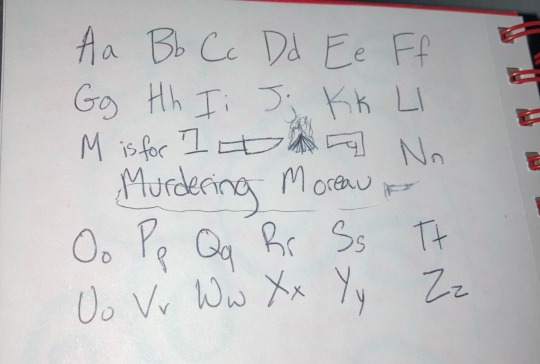 Aa Bb Cc Dd Ee Ff
Gg Hh Ii Jj Kk Ll
M is for Nn
Murdering Moreau
Oo Pp Qq Rr Ss Tt
Uu Vv Ww Xx Yy Zz